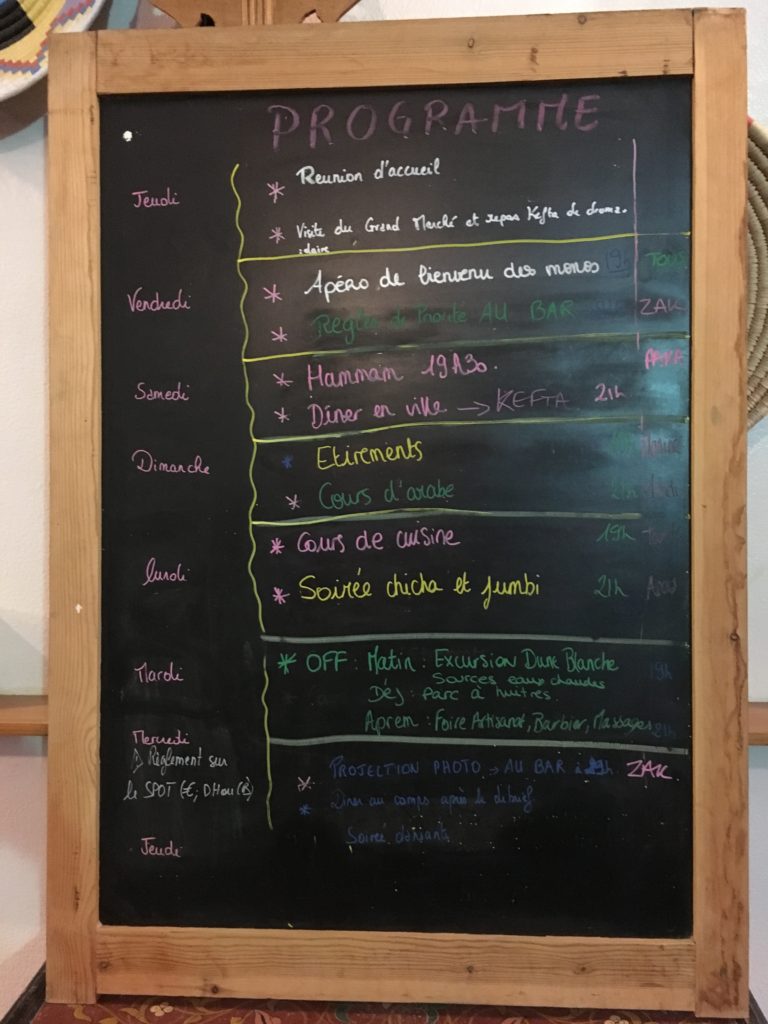 PROGRAMME
Jeudi
* Reunion d'accueil
* Visite du Grand Marché et repas Kefta de droma-
-daire
Vendredi
* Apéro de bienvenu des monos 19h TOUS
* Règles de Priorité AU BAR ZAK
Samedi
* Hammam 19h30.
* Dîner en ville → KEFTA 21h
Dimanche
* Etirements
* Cours d'arabe 21h
lundi
* Cours de cuisine 19h
* Soirée chicha et jumbi 21h
Mardi
* OFF : Matin : Excursion Dune Blanche
Sources eaux chaudes 19h
Déj : Parc à huîtres.
Aprem : Foire Artisanat, Barbier, Massages 21h
Mercredi
⚠ Règlement sur
le SPOT (€, DH ou CB)
* PROJECTION PHOTO → AU BAR à 19h. ZAK
* Diner au camps après le debrief
Soirée
Jeudi